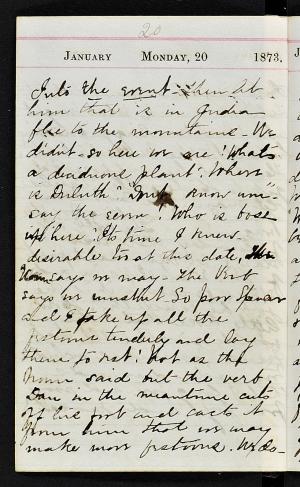 20
January Monday, 20 1873.
Into the event. Then let
him that is in Judea
flee to the mountains - We
didn't - so here we are! Whats
a deciduous plant? Where
is Duluth" "Don't know uni-
say the seven! Who is boss
here? Its time I knew
desirable to at this date. The
Noun says we may - The Verb
says we mustnt So poor Spencer
and I take up all the
pistons tenderly and lay
them to rest! Not as the
Noun said but the verb
Dan in the meantime cuts
off his and casts it
from him that we may
make more pistons. We do-